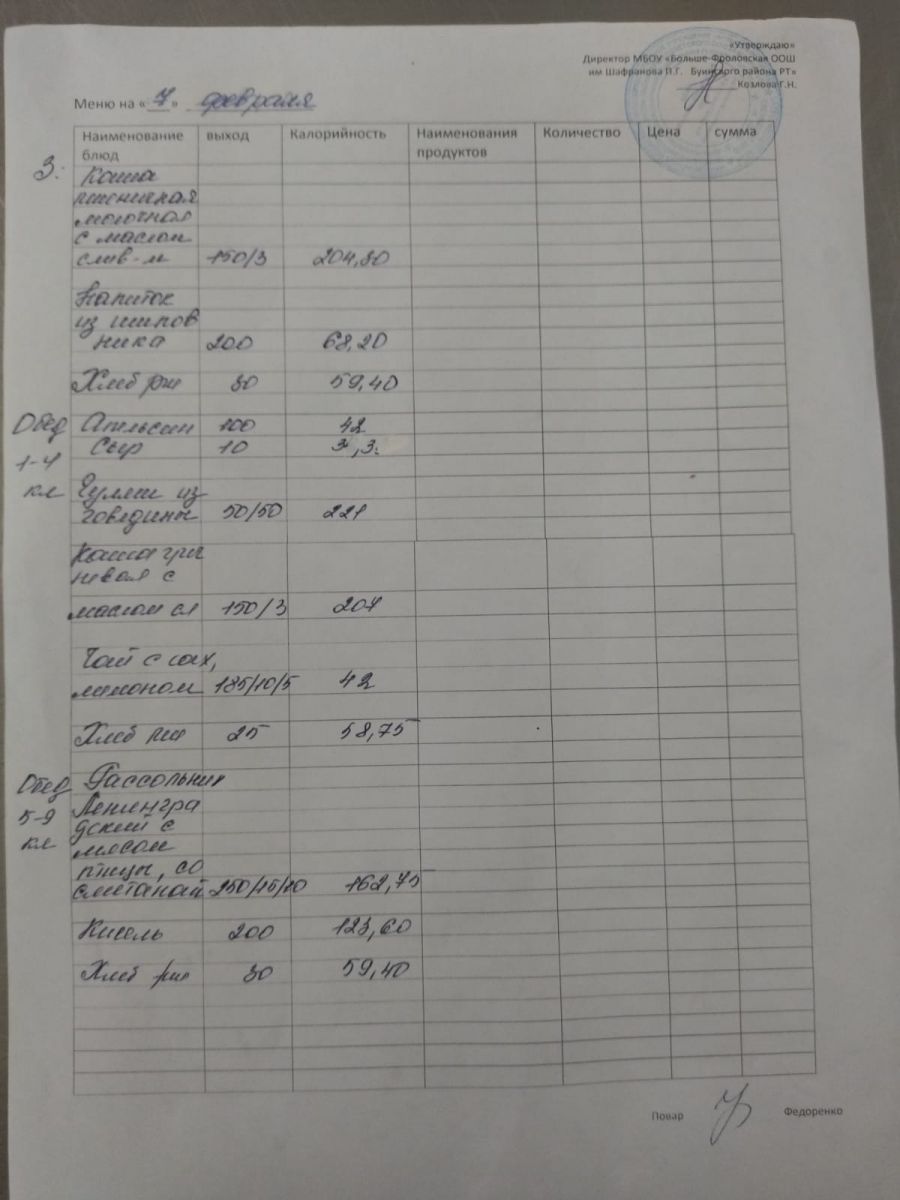 «Утверждаю»
Директор МБОУ «Больше-Фроловская ООШ
им Шафранова П.Г. Буинского района РТ»
Козлова Г.Н.
Меню на «7» февраля
Наименование блюд выход Калорийность Наименования продуктов Количество Цена сумма
З.
Каша
пшеничная
молочная
с маслом
слив-м 150/3 204,30
Напиток
из шипов
ника 200 68,20
Хлеб рж 30 59,40
Обед Апельсин 100 42
Сыр 10
1-4
кл Гуляш из
говядины 50/50 221
Каша гре
невая с
маслом сл 150/3 201
Чай с сах,
лимоном 185/10/5 42
Хлеб 25 58,75
Обед Рассольник
5-9 Ленингра
дский с
кл мясом
птицы, со
сметаной 250/15/10 162,75
Кисель 200 123,60
Хлеб рж 30 59,40
Повар Федоренко